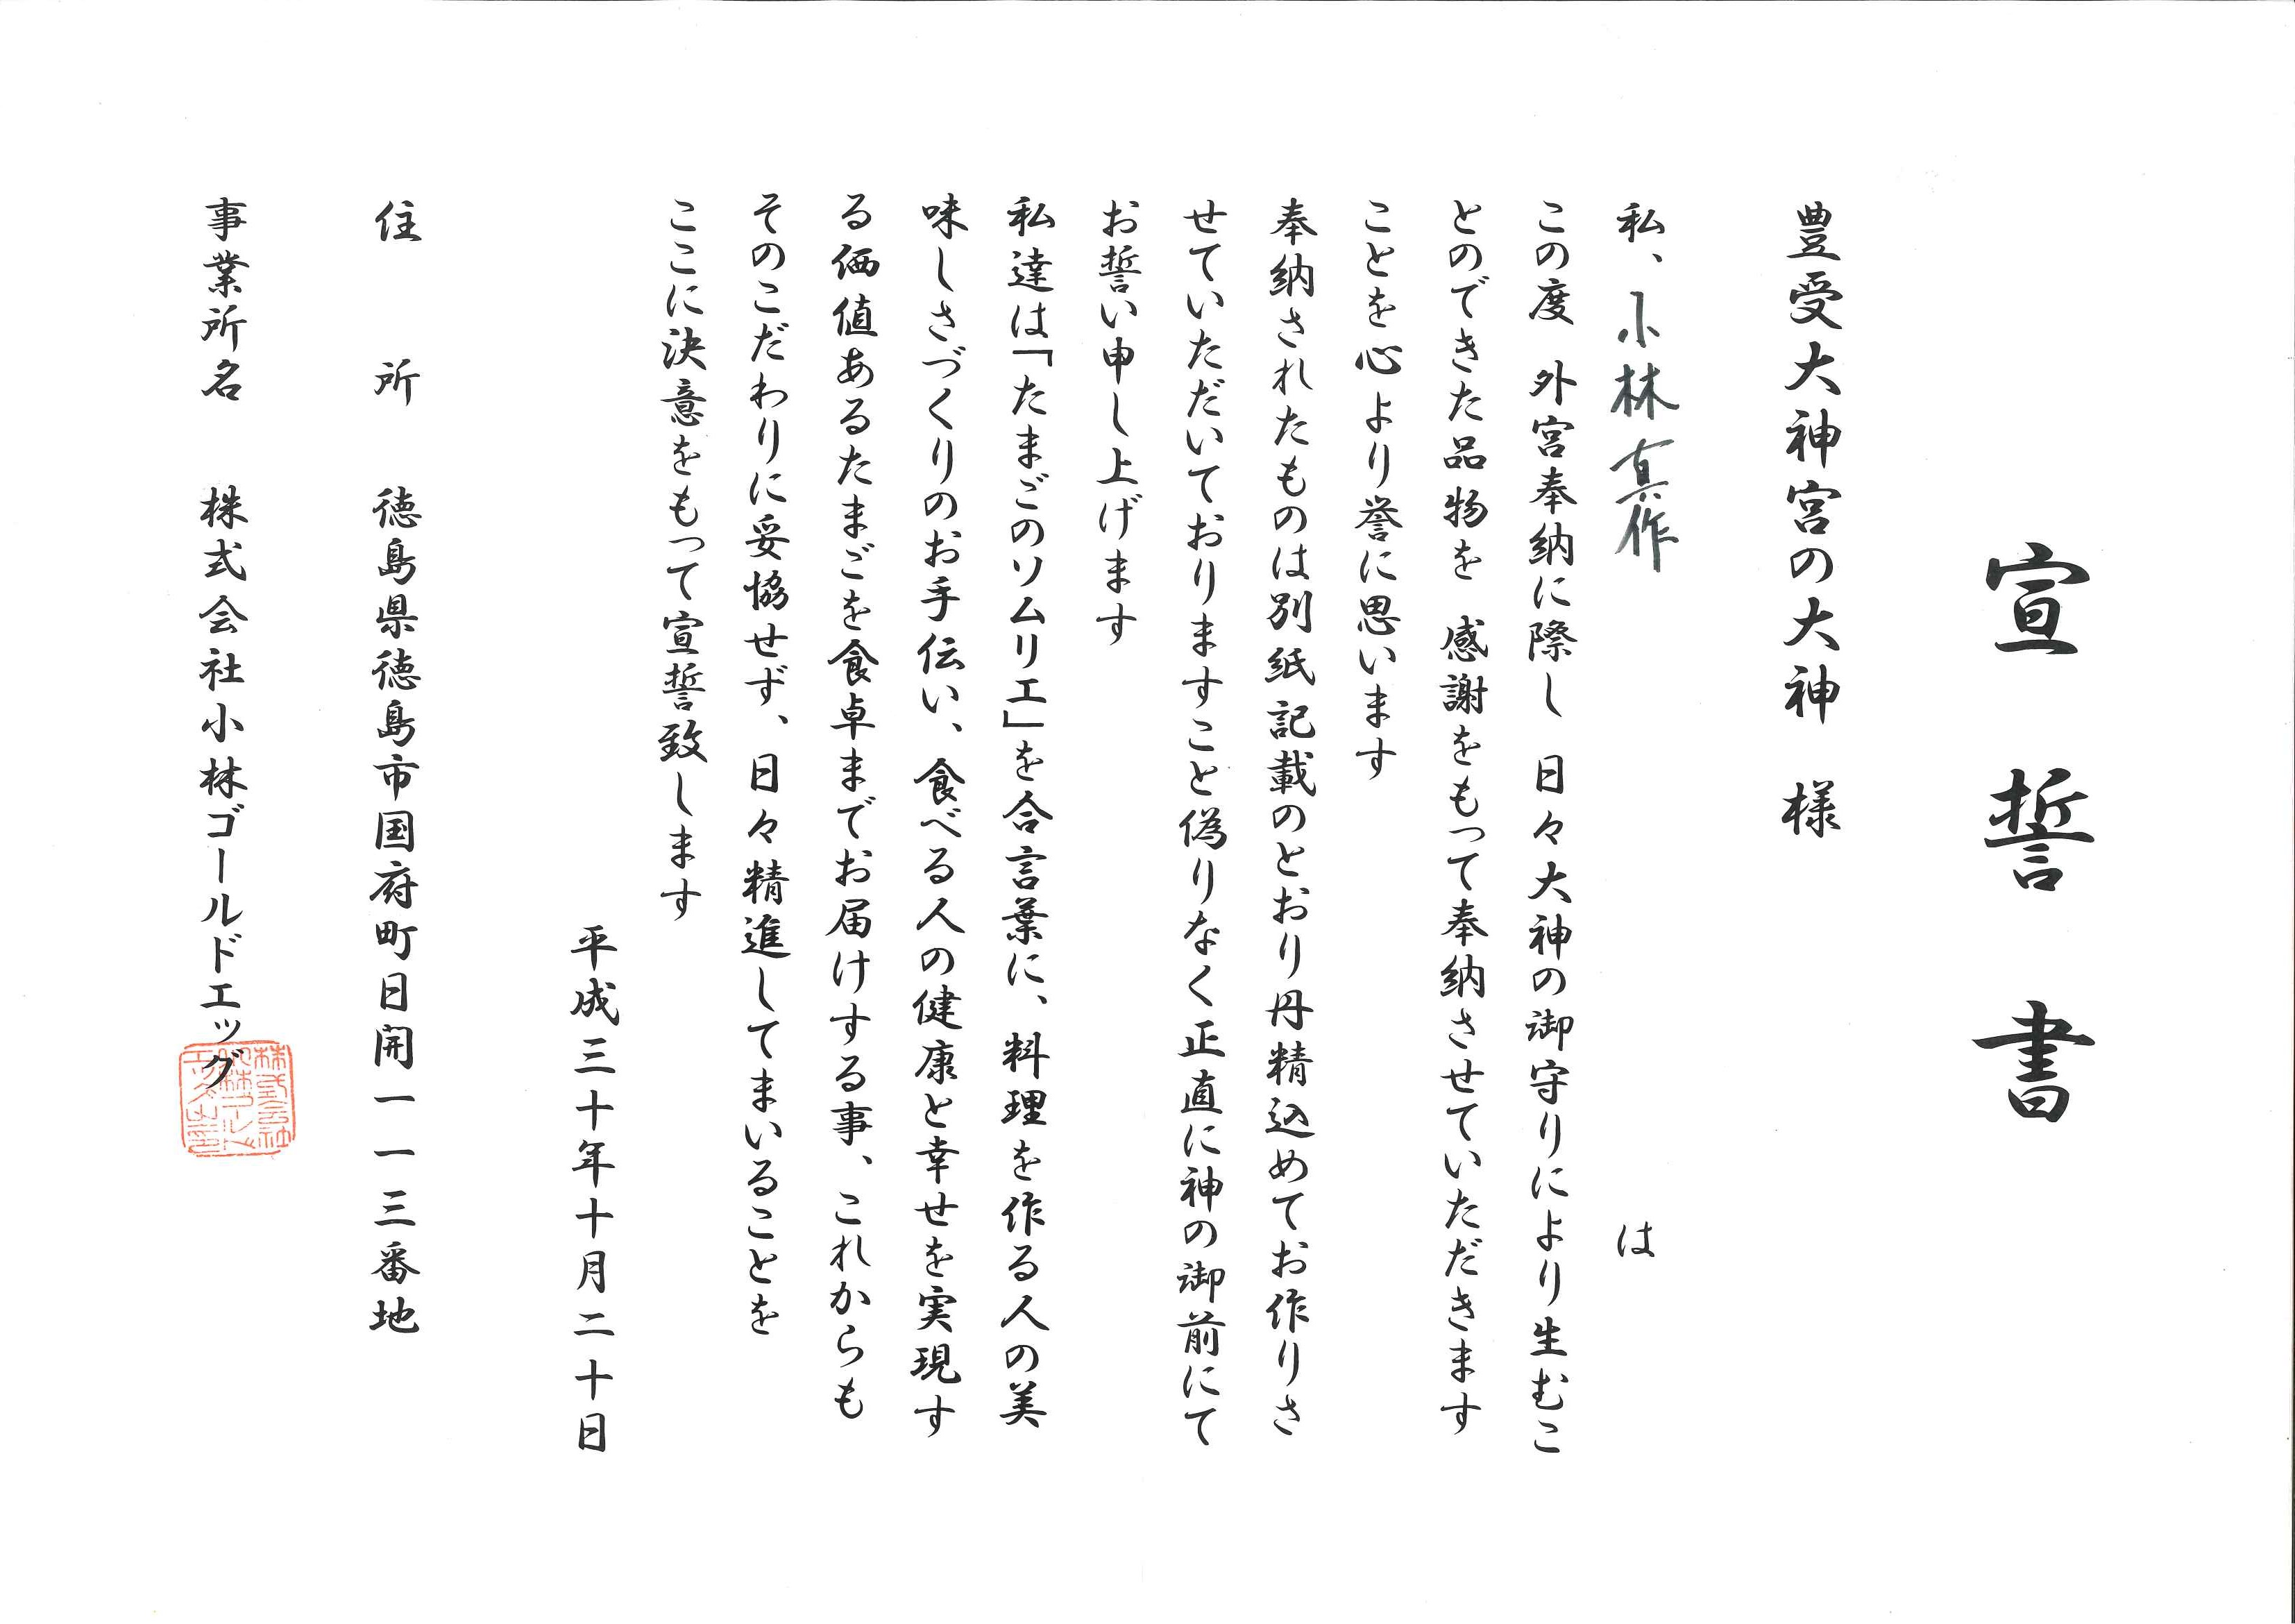 宣誓書
豊受大神宮の大神　様
私、小林真作　は
この度　外宮奉納に際し　日々大神の御守りにより生むこ
とのできた品物を　感謝をもって奉納させていただきます
ことを心より誉に思います
奉納されたものは別紙記載のとおり丹精込めてお作りさ
せていただいておりますこと偽りなく正直に神の御前にて
お誓い申し上げます
私達は「たまごのソムリエ」を合言葉に、料理を作る人の美
味しさづくりのお手伝い、食べる人の健康と幸せを実現す
る価値あるたまごを食卓までお届けする事、これからも
そのこだわりに妥協せず、日々精進してまいることを
ここに決意をもって宣誓致します
平成三十年十月二十日
住　所　徳島県徳島市国府町日開一一三番地
事業所名　株式会社小林ゴールドエッグ